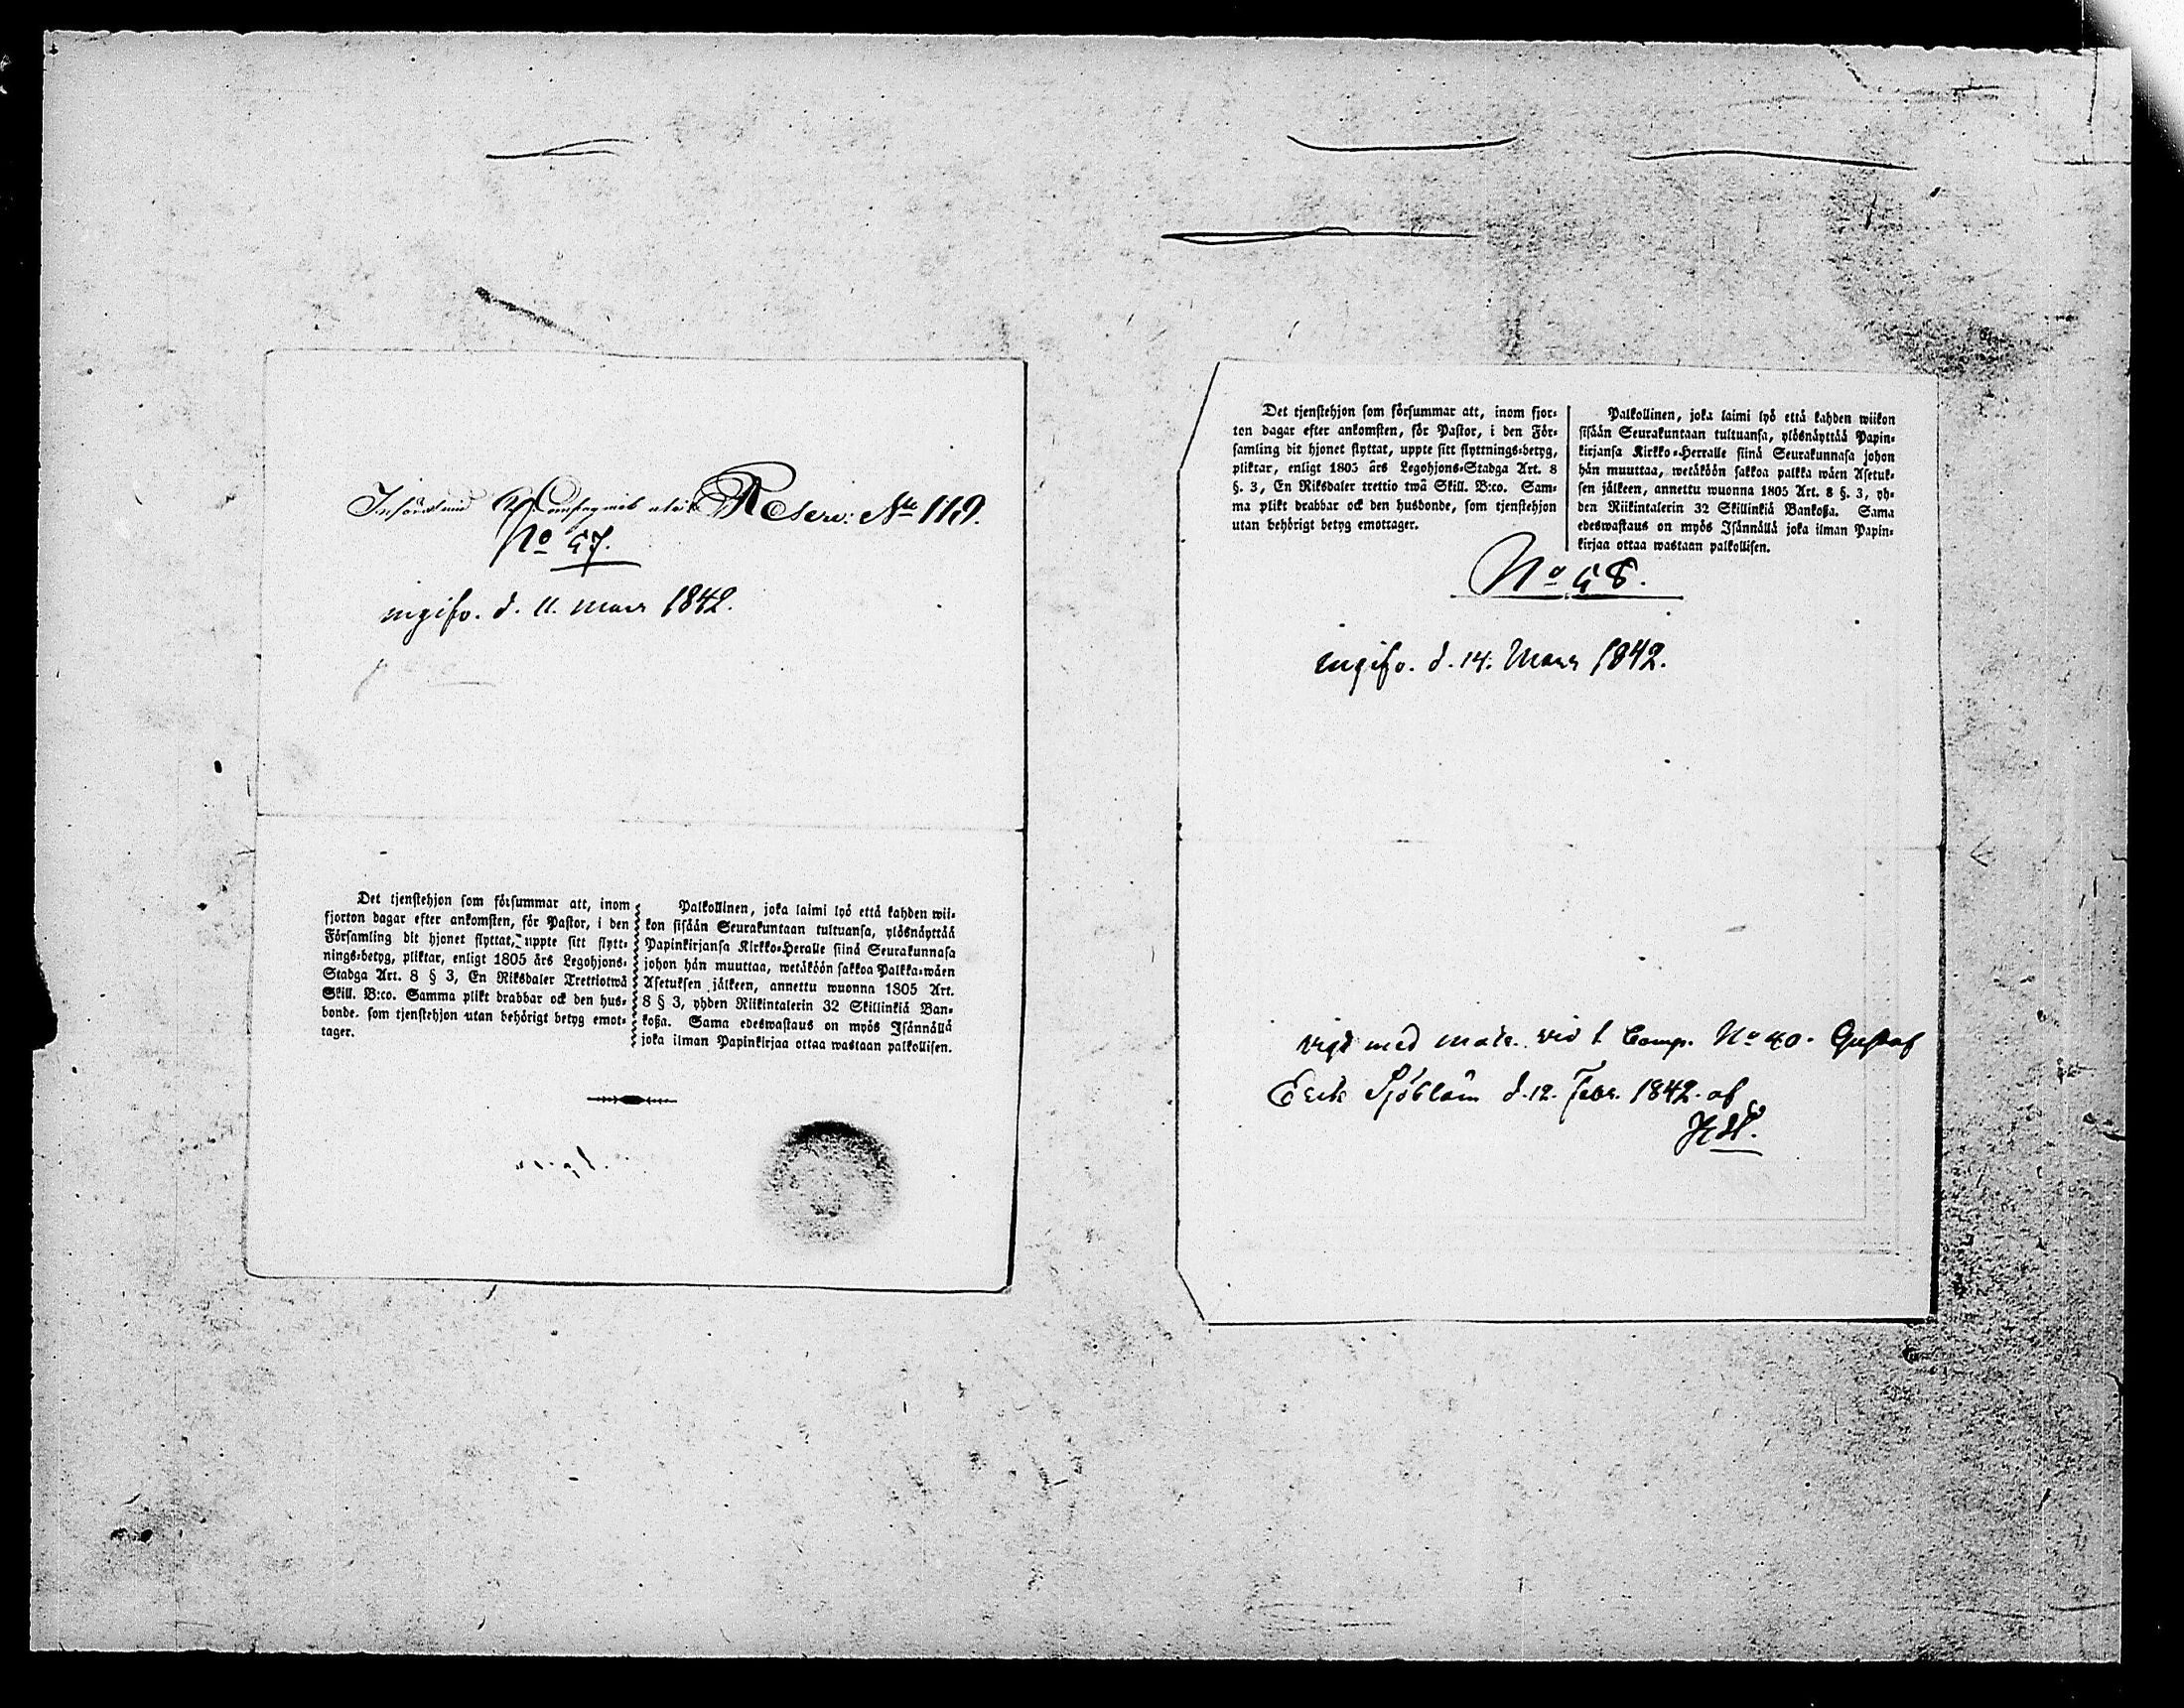 Compagniet Reserv: No 119.
No 57.
ingifv. d. 11. Mars 1842.
Det tjenstehjon som försummar att, inom
fjorton dagar efter ankomsten, för Pastor, i den
Församling dit hjonet flyttat, uppte sitt flytt-
nings-betyg, pliktar, enligt 1805 års Legohjons-
Stadga Art. 8 § 3, En Riksdaler Trettiotwå
Skill. B:co. Samma plikt drabbar ock den hus-
bonde. som tjenstehjon utan behörigt betyg emot-
tager.
Palkollinen, joka laimi lyö että kahden wii-
kon sisään Seurakuntaan tultuansa, ylösnäyttää
Papinkirjansa Kirkko-Heralle siinä Seurakunnasa
johon hän muuttaa, wetäköön sakkoa Palkka-wäen
Asetuksen jälkeen, annettu wuonna 1805 Art.
8 § 3, yhden Riikintalerin 32 Skillinkiä Ban-
koßa. Sama edeswastaus on myös Isännällä
joka ilman Papinkirjaa ottaa wastaan palkollisen.
Det tjenstehjon som försummar att, inom fjor-
ton dagar efter ankomsten, för Pastor, i den För-
samling dit hjonet flyttat, uppte sitt flyttnings-betyg,
pliktar, enligt 1805 års Legohjons-Stadga Art. 8
§. 3, En Riksdaler trettio twå Skill. B:co. Sam-
ma plikt drabbar ock den husbonde, som tjenstehjon
utan behörigt betyg emottager.
Palkollinen, joka laimi lyö että kahden wiikon
sisään Seurakuntaan tultuansa, ylösnäyttää Papin-
kirjansa Kirkko-Herralle siinä Seurakunnasa johon
hän muuttaa, wetäköön sakkoa palkka wäen Asetuk-
sen jälkeen, annettu wuonna 1805 Art. 8 §. 3, yh-
den Riikintalerin 32 Skillinkiä Bankoßa. Sama
edeswastaus on myös Isännällä joka ilman Papin-
kirjaa ottaa wastaan palkollisen.
No 58.
ingifv. d. 14. Mars 1842.
vigd med mats. vid 1 Comp. No 40. Gustaf
Erik Sjöblom d. 12. Febr. 1842. af